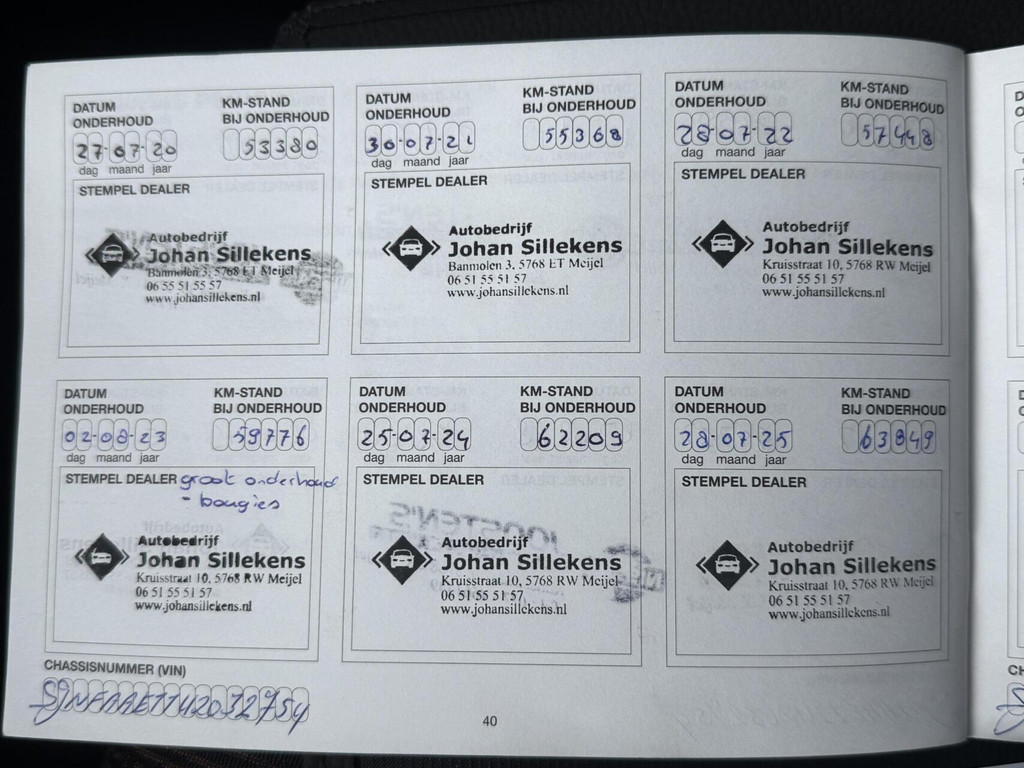 DATUM
ONDERHOUD
KM-STAND
BIJ ONDERHOUD
27-07-20
53380
dag maand jaar
STEMPEL DEALER
Autobedrijf
Johan Sillekens
Banmolen 3, 5768 ET Meijel
06 55 51 55 57
www.johansillekens.nl
DATUM
ONDERHOUD
KM-STAND
BIJ ONDERHOUD
30-07-21
55368
dag maand jaar
STEMPEL DEALER
Autobedrijf
Johan Sillekens
Banmolen 3, 5768 ET Meijel
06 51 55 51 57
www.johansillekens.nl
DATUM
ONDERHOUD
KM-STAND
BIJ ONDERHOUD
28-07-22
57448
dag maand jaar
STEMPEL DEALER
Autobedrijf
Johan Sillekens
Kruisstraat 10, 5768 RW Meijel
06 51 55 51 57
www.johansillekens.nl
DATUM
ONDERHOUD
KM-STAND
BIJ ONDERHOUD
02-08-23
59776
dag maand jaar
STEMPEL DEALER groot onderhoud
- bougies
Autobedrijf
Johan Sillekens
Kruisstraat 10, 5768 RW Meijel
06 51 55 51 57
www.johansillekens.nl
DATUM
ONDERHOUD
KM-STAND
BIJ ONDERHOUD
25-07-24
62209
dag maand jaar
STEMPEL DEALER
Autobedrijf
Johan Sillekens
Kruisstraat 10, 5768 RW Meijel
06 51 55 51 57
www.johansillekens.nl
DATUM
ONDERHOUD
KM-STAND
BIJ ONDERHOUD
28-07-25
63849
dag maand jaar
STEMPEL DEALER
Autobedrijf
Johan Sillekens
Kruisstraat 10, 5768 RW Meijel
06 51 55 51 57
www.johansillekens.nl
CHASSISNUMMER (VIN)
40